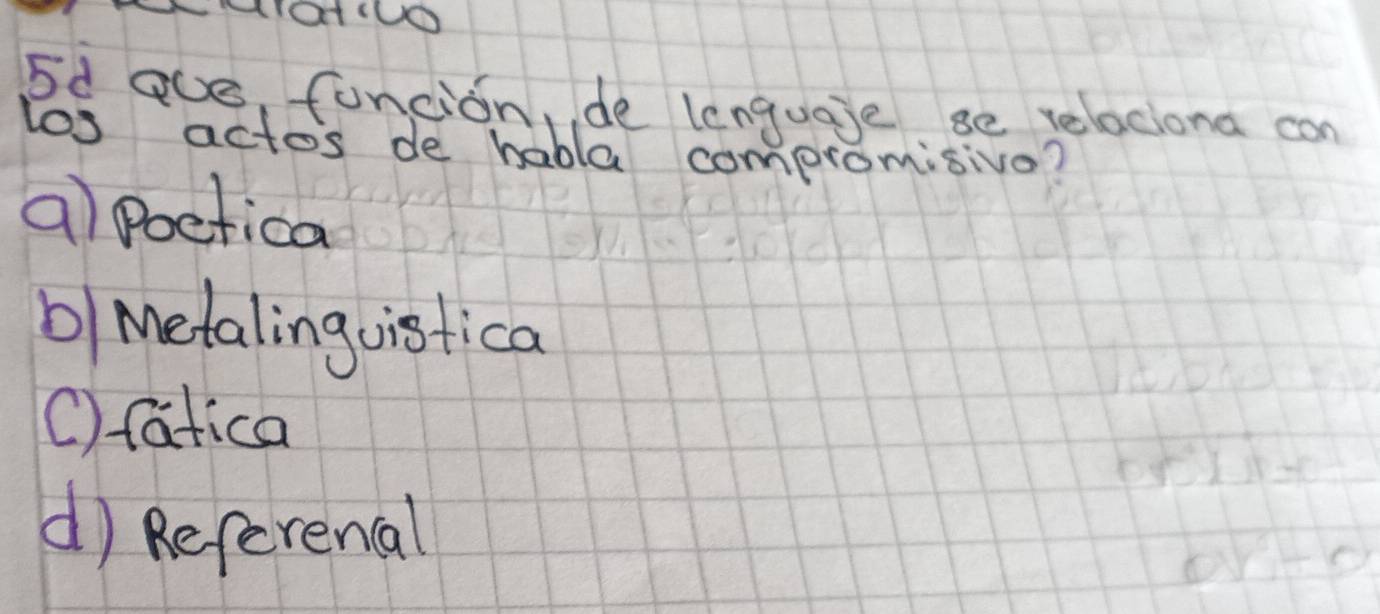 5¿ Que función de lenguaje se relaciona con
los actos de habla compromisivo?
a) Poetica
b) Metalinguistica
c) fática
d) Referencal